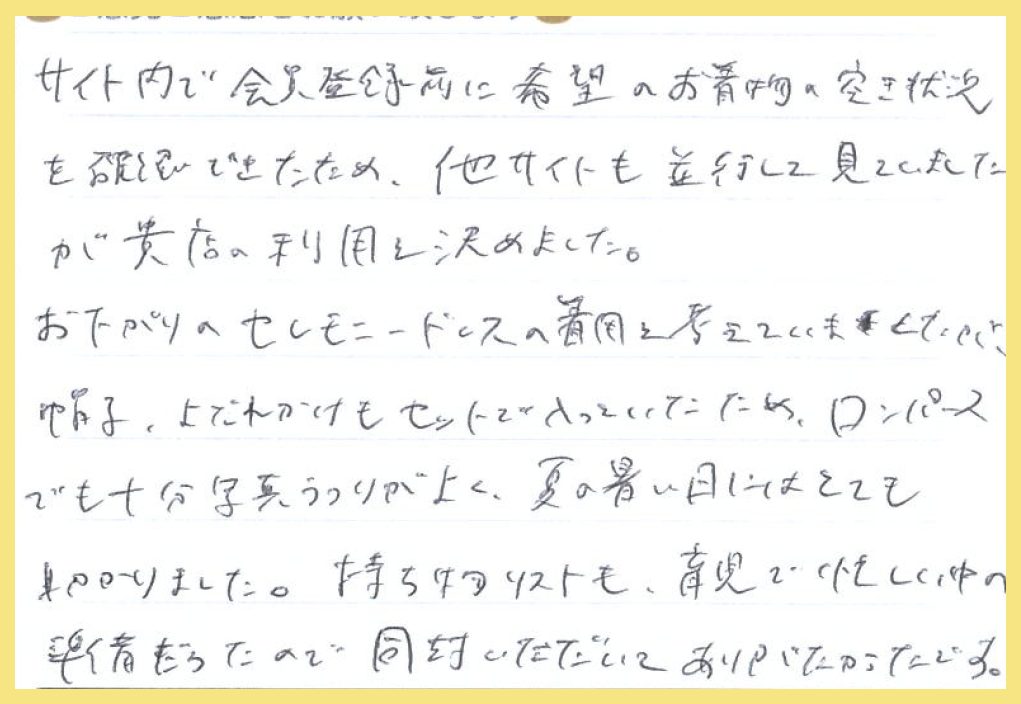 サイト内で会員登録前に希望のお着物の空き状況
を確認できたため、他サイトも並行して見ていました
が貴店の利用を決めました。
お下がりのセレモニードレスの着用を考えていましたが、
帽子、よだれかけもセットで入っていたため、ロンパース
でも十分写真うつりがよく、夏の暑い日にはとても
助かりました。持ち物リストも、育児で忙しい中の
準備だったので同封いただいてありがたかったです。